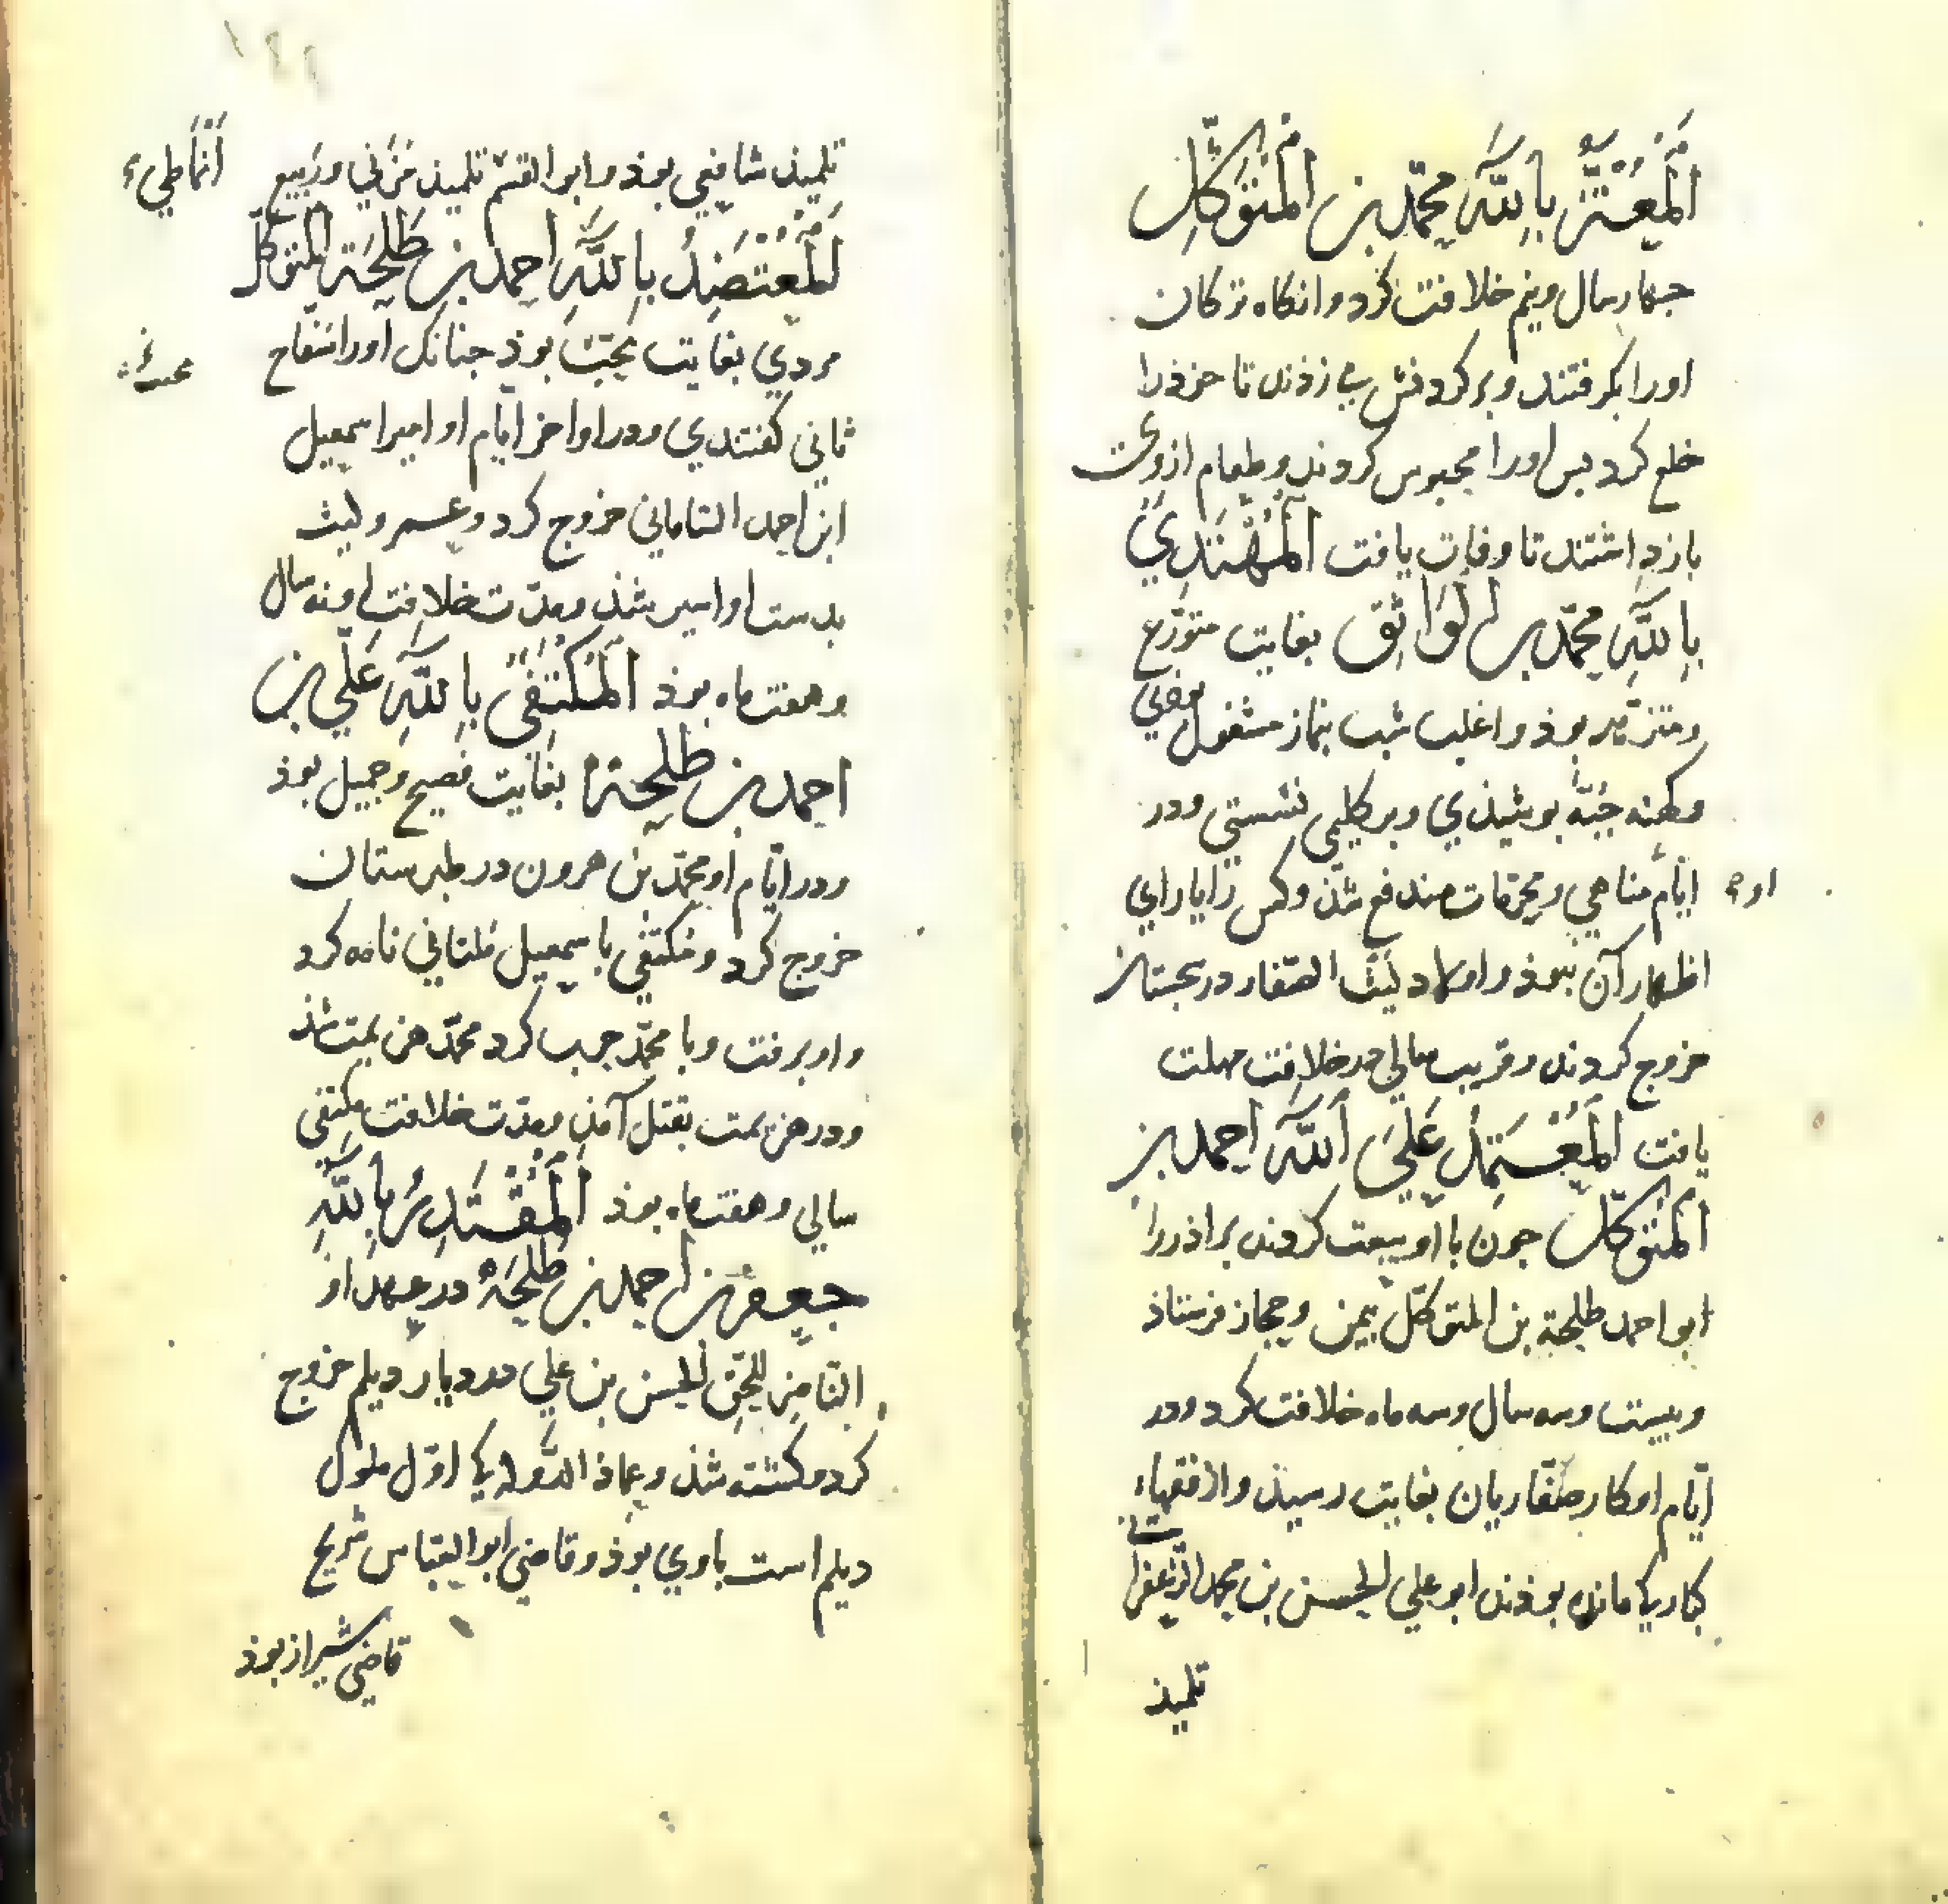 المعتز بالله محمد بن المتوكل
جهار سال ونيم خلافت كرد وانكاه تركان
اورا بكرفتند وبر كردنش مي زذند تا خوذرا
خلع كرد بس اورا محبوس كردند وطعام ازوي
بازداشتند تا وفات يافت المهتدي
بالله محمد بن الواثق بغايت متورّع
ومتزهد بوذ واغلب شب بنماز مشغول بوذي
وكهنه جبّه بوشيذي وبر كليمي نشستي ودر
ايّام او مناهي ومحرّمات مندفع شذ وكس را ياراي
اظهار آن نبوذ واولاد ليث الصفار در سجستان
خروج كردند وقريب سالي در خلافت مهلت
يافت المعتمد على الله احمد بن
المتوكل جون با او بيعت كردند براذر را
ابو احمد طلحة بن المتوكّل بيمن وحجاز فرستاذ
وبيست وسه سال وسه ماه خلافت كرد ودر
ايّام او كار صفّاريان بغايت رسيذ واز فقهاء
كبار كي مانده بوذند ابو علي الحسن بن محمد الزعفراني
تلميذ
تلميذ شافعي بوذ وابو القسم تلميذ مزني وربيع
انماطي
المعتضد بالله احمد بن طلحة المتوكل
مردي بغايت بوذ جنانك اورا سفاح
ثاني كفتندي ودر اواخر ايّام او امير اسمعيل
ابن احمد الساماني خروج كرد وعمرو ليث
بدست او اسير شذ ومدّت خلافت او نه سال
وهفت ماه بوذ المكتفي بالله علي بن
احمد بن طلحة بغايت فصيح وجميل بوذ
ودر ايّام او محمّد بن هرون در طبرستان
خروج كرد ومكتفي با سمعيل ساماني نامه كرد
واو برفت وبا محمّد حرب كرد محمّد هزيمت شذ
ودر هزيمت بقتل آمذ ومدّت خلافت مكتفي
سالي وهفت ماه بوذ المقتدر بالله
جعفر بن احمد بن طلحة در عهد او
الناصر للحق الحسن بن علي در ديار ديلم خروج
كرد وكشته شذ وعماذ الدوله كي اوّل ملوك
ديلم است باوي بوذ وقاضي ابو العباس شريح
قاضي شيراز بوذ